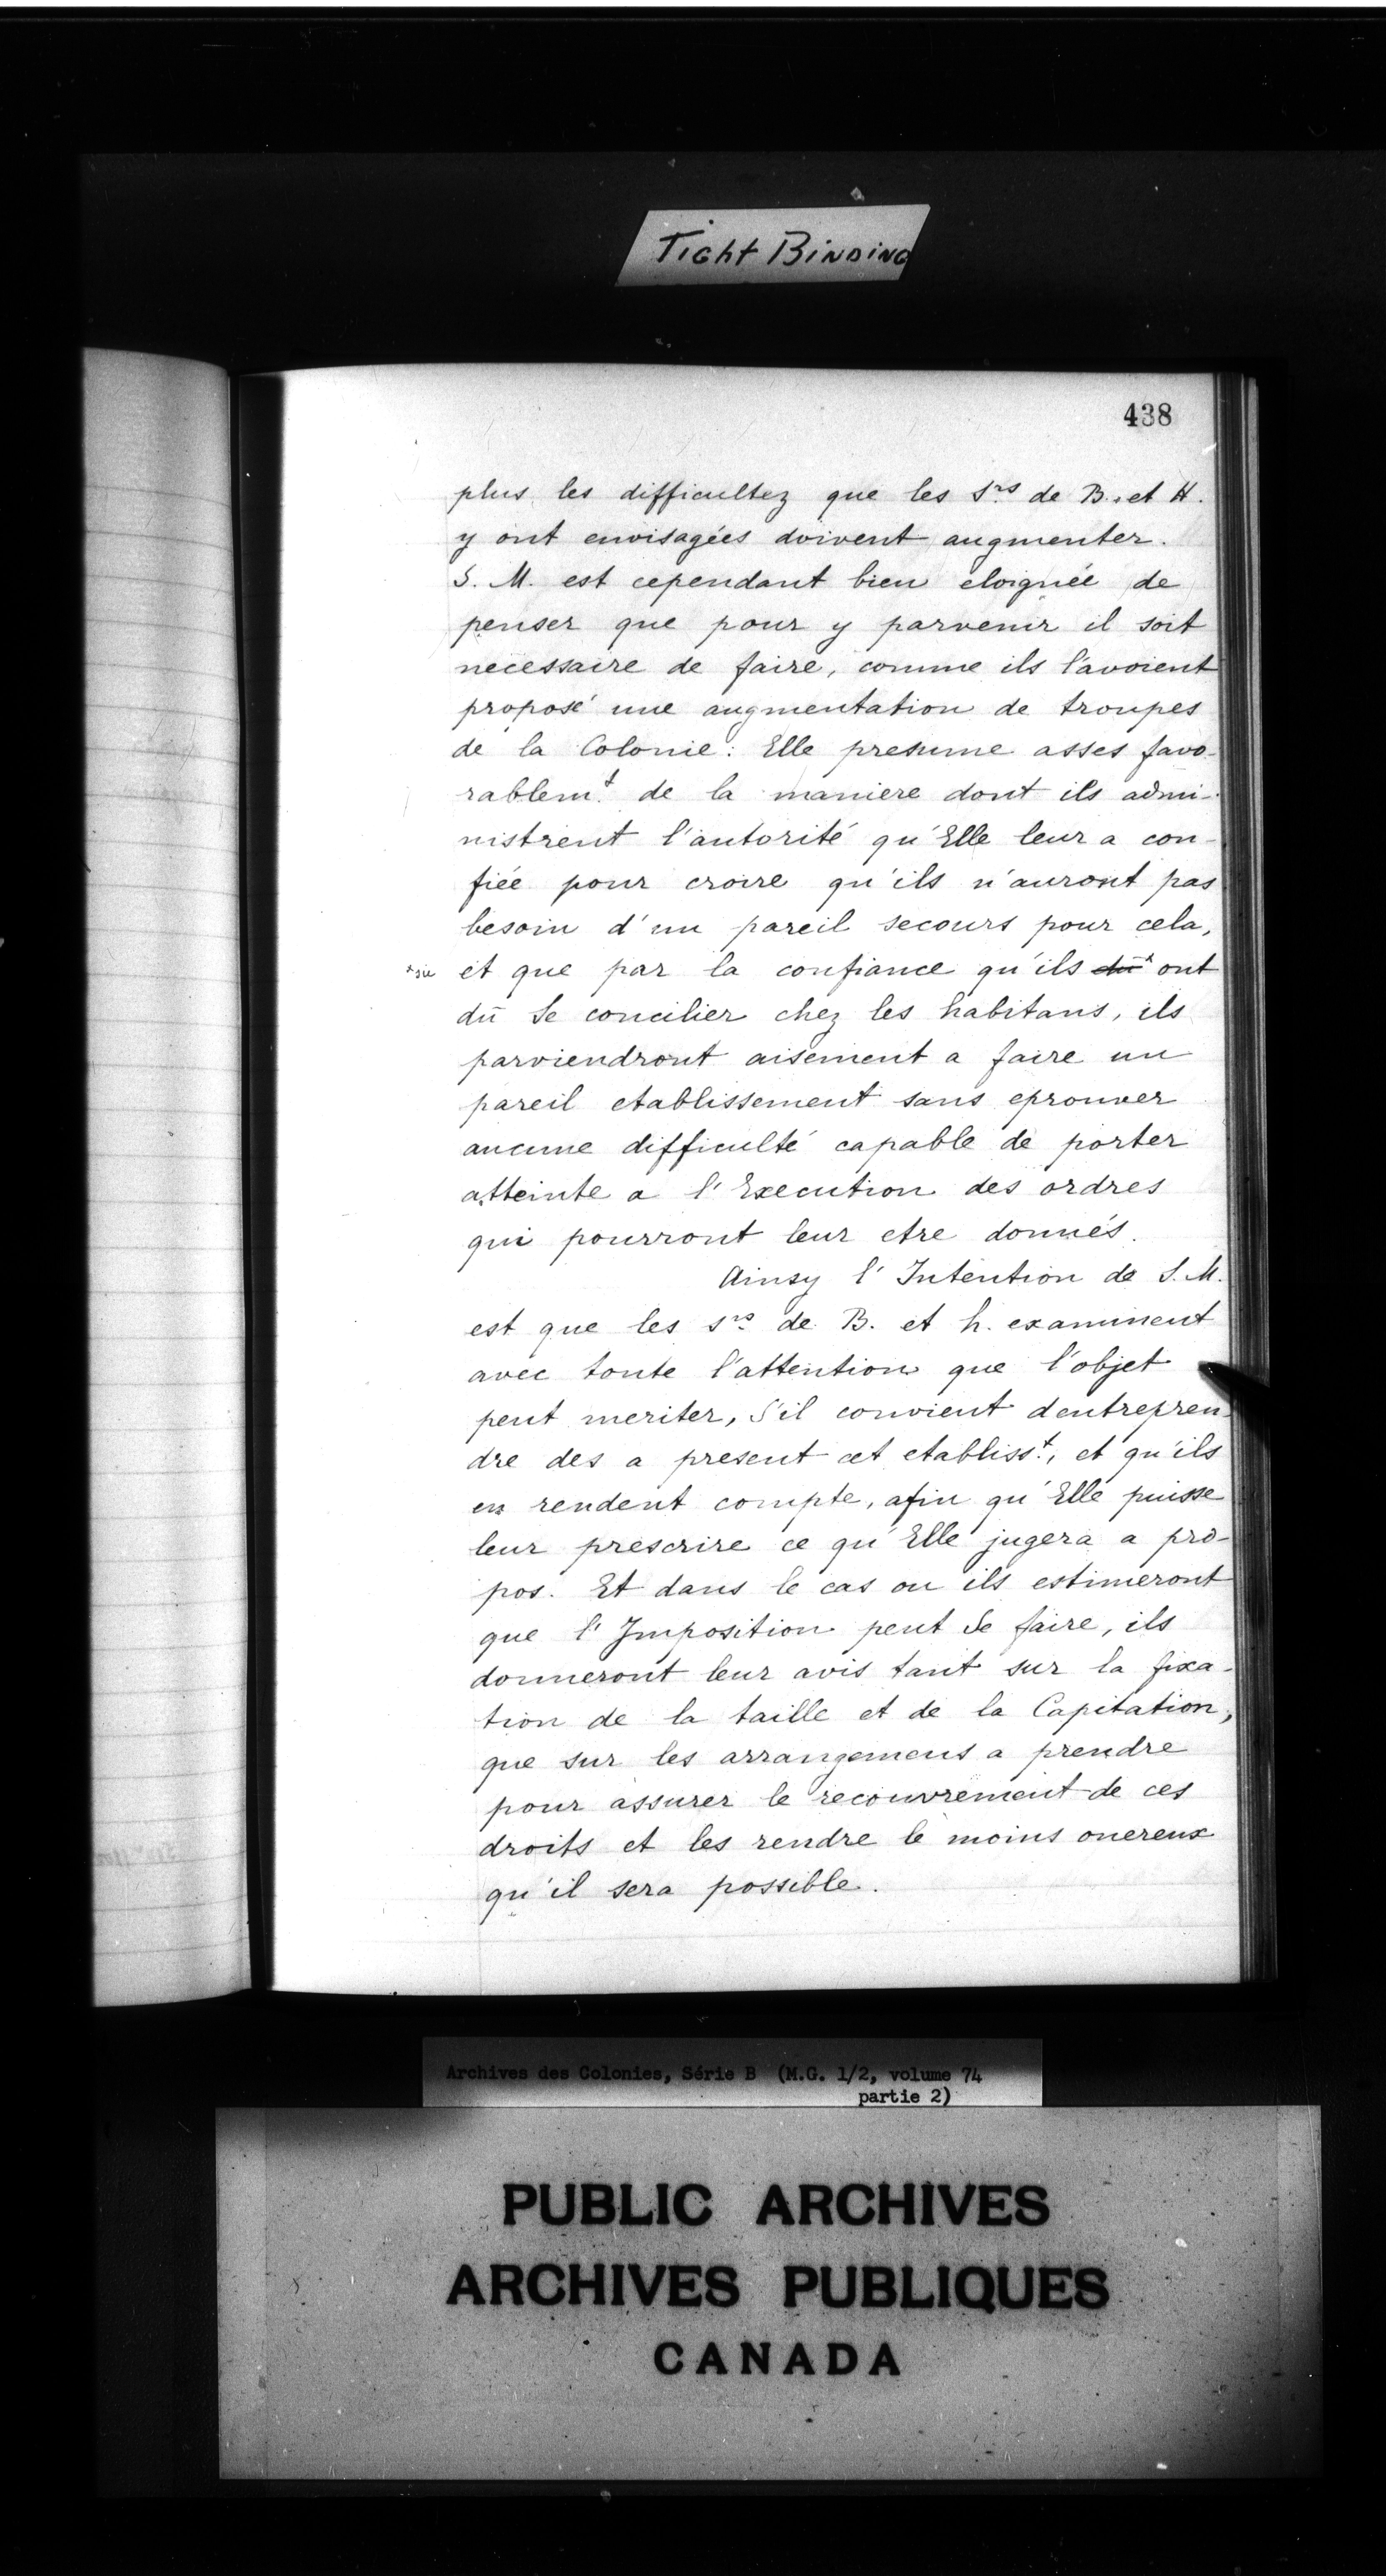 Tight Binding
438
plus les difficultez que les Srs de B. et H.
y ont envisagées doivent augmenter.
S. M. est cependant bien eloignée de
penser que pour y parvenir il soit
necessaire de faire, comme ils l'avoient
proposé une augmentation de troupes
de la Colonie: Elle presume asses favo-
rablemt de la maniere dont ils admi-
nistrent l'autorité qu'Elle leur a con-
fiée pour croire qu'ils n'auront pas
besoin d'un pareil secours pour cela,
et que par la confiance qu'ils dû x ont
dû Se concilier chez les habitans, ils
parviendront aisement a faire un
pareil etablissement sans eprouver
aucune difficulté capable de porter
atteinte a l'Execution des ordres
qui pourront leur etre donnés.
Ainsy l'Intention de S. M.
est que les srs de B. et h. examinent
avec toute l'attention que l'objet
peut meriter, S'il convient dentrepren-
dre des a present cet etablisst, et qu'ils
en rendent compte, afin qu'Elle puisse
leur prescrire ce qu'Elle jugera a pro-
pos. Et dans le cas ou ils estimeront
que l'Imposition peut Se faire, ils
donneront leur avis tant sur la fixa-
tion de la taille et de la Capitation,
que sur les arrangemens a prendre
pour assurer le recouvrement de ces
droits et les rendre le moins onereux
qu'il sera possible.
Archives des Colonies, Série B (M.G. 1/2, volume 74
partie 2)
PUBLIC ARCHIVES
ARCHIVES PUBLIQUES
CANADA